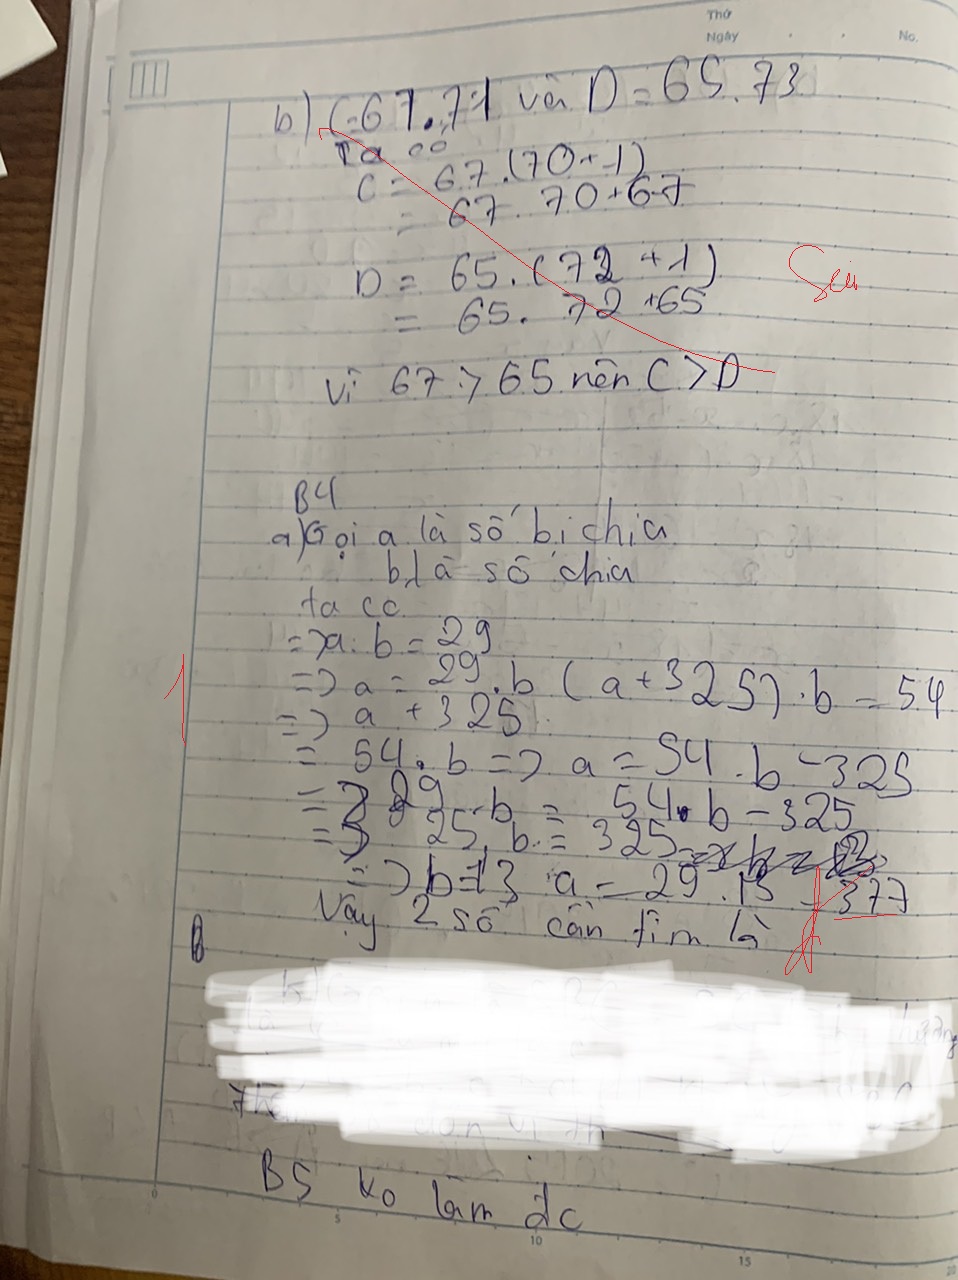 Thứ
Ngày No.
b) C=67.71 và D=65.73
Ta có
C = 67.(70+1)
= 67. 70+67
D = 65.(72+1)
= 65. 72+65
Sai
Vì 67>65 nên C>D
B4
a) Gọi a là số bị chia
b là số chia
ta có
=> a: b = 29
=> a = 29.b (a+325) : b = 54
=> a + 325
= 54.b => a = 54.b - 325
=> 29.b = 54.b - 325
=> 25.b = 325
=> b=13 a = 29.13 = 377
Vậy 2 số cần tìm là
1
B5 ko làm đc
0 5 10 15 20